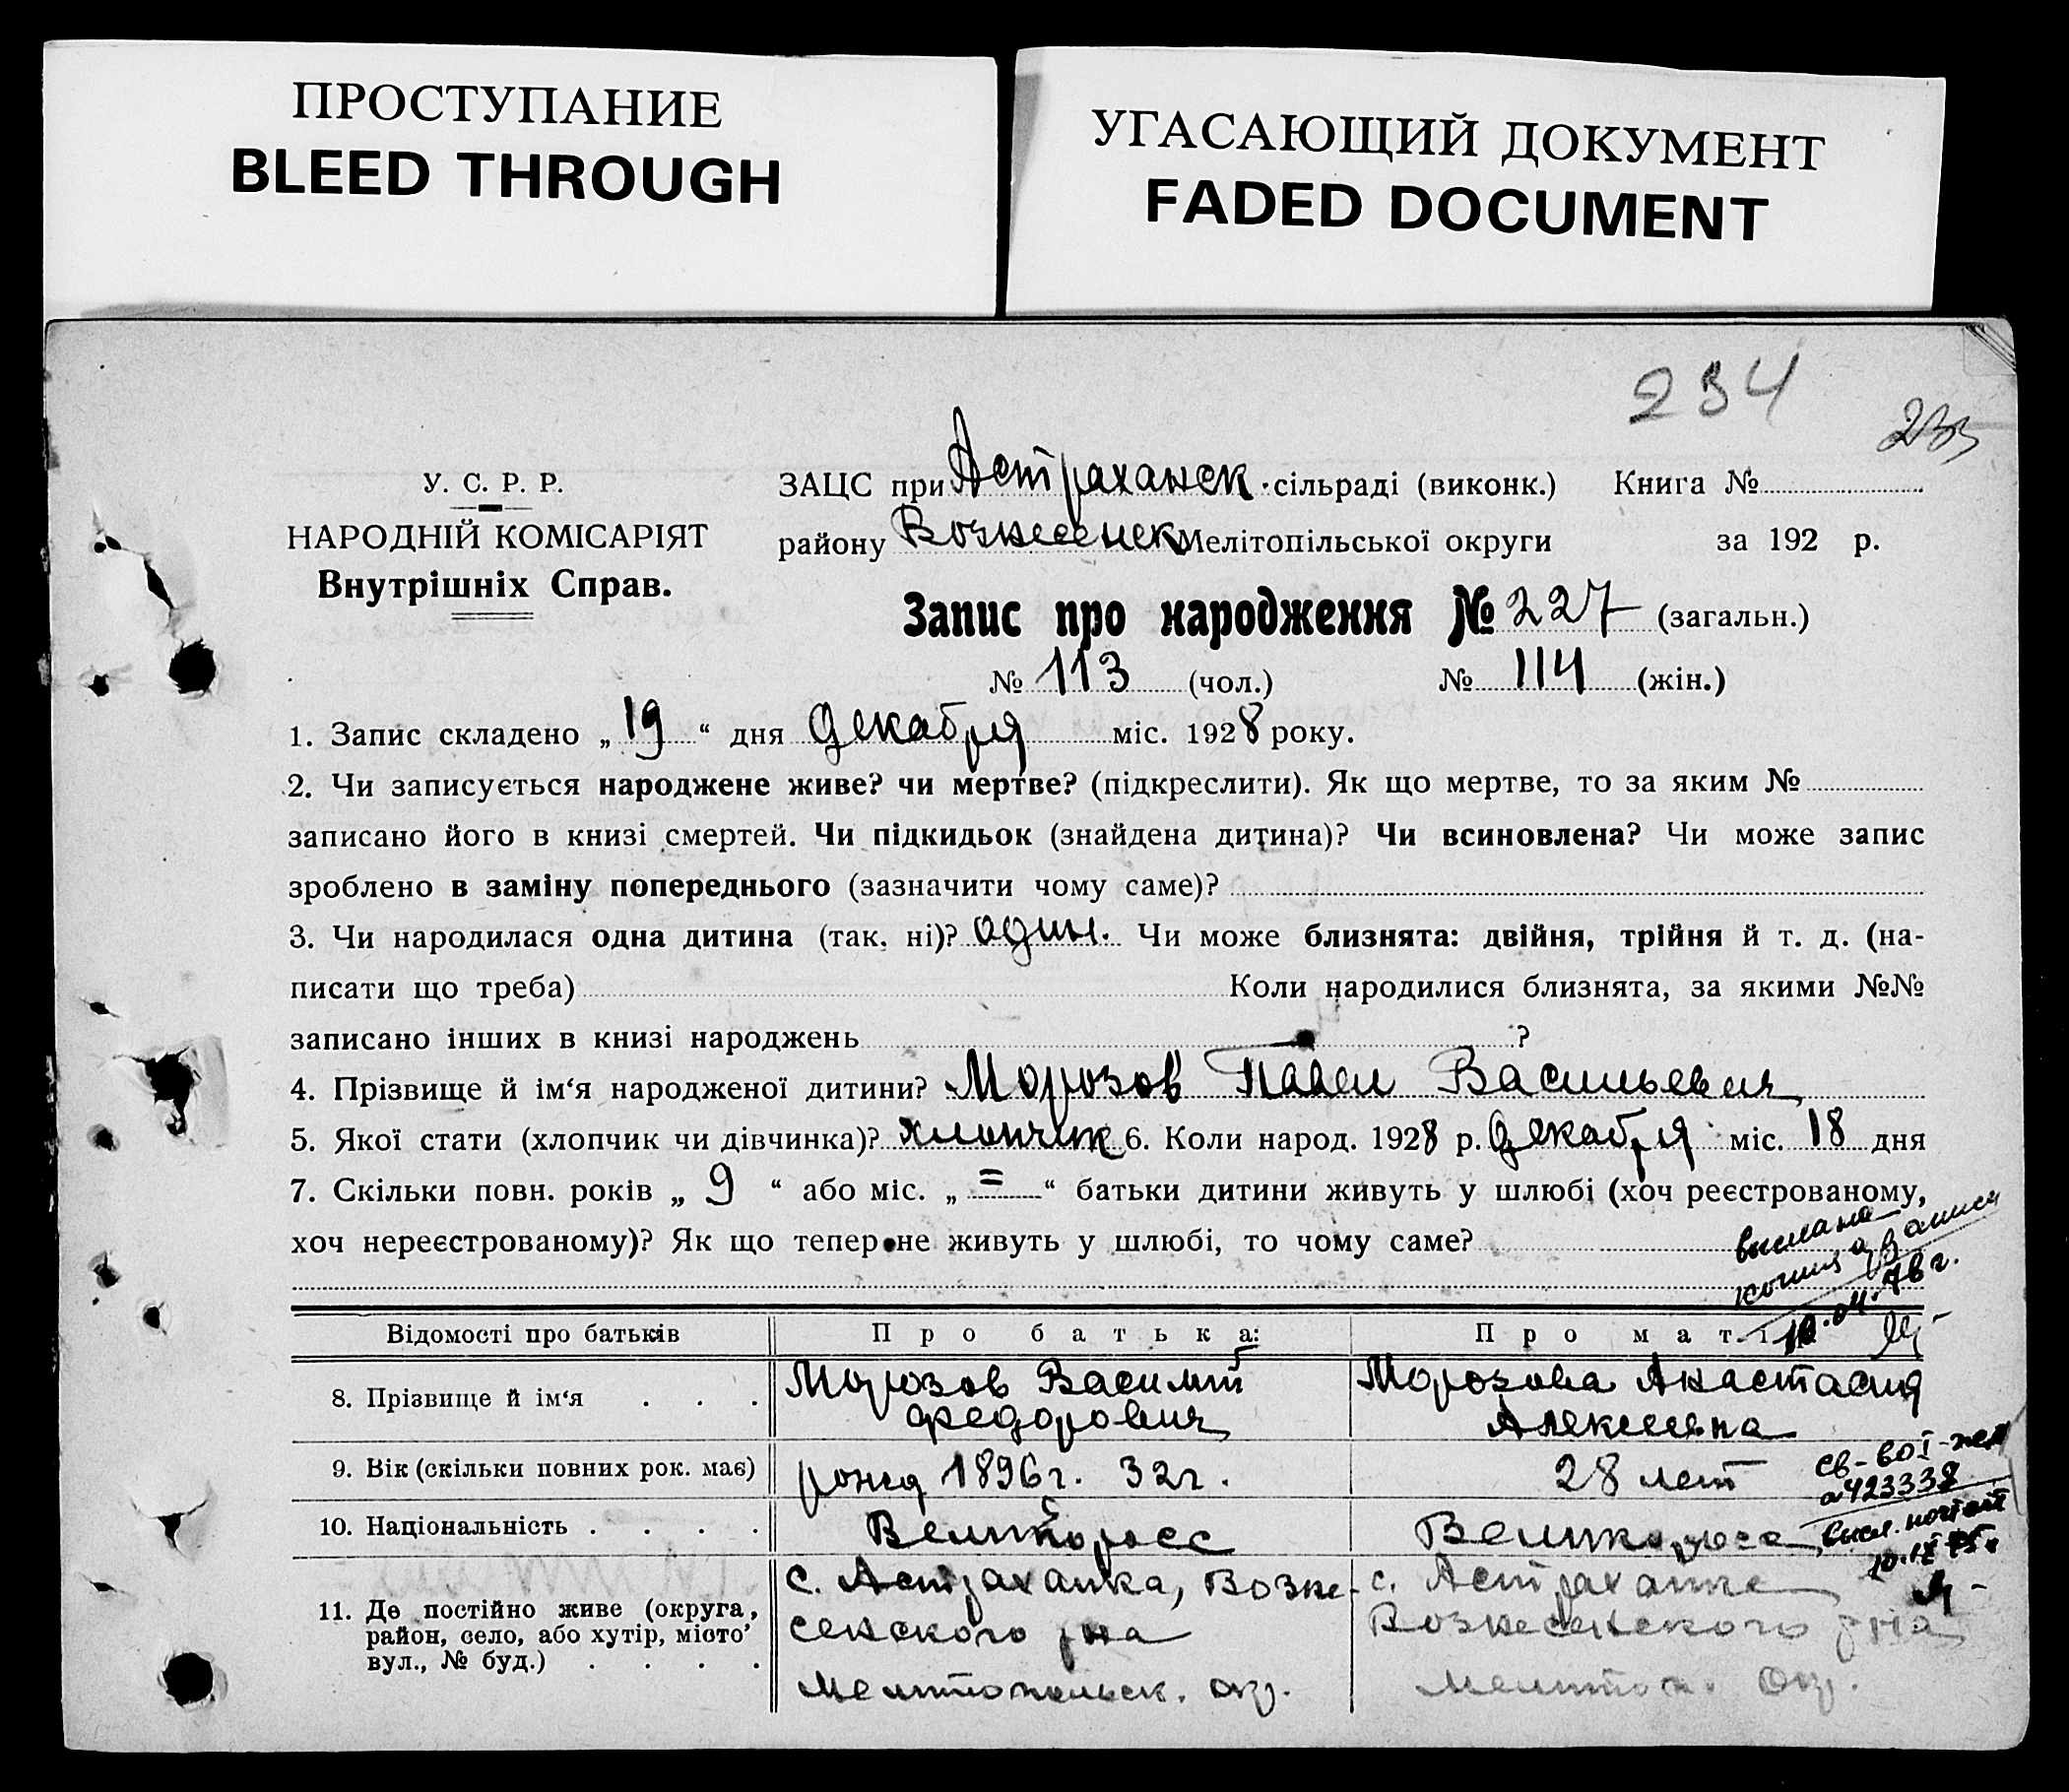 ПРОСТУПАНИЕ
BLEED THROUGH
УГАСАЮЩИЙ ДОКУМЕНТ
FADED DOCUMENT
234
233
У. С. Р. Р.
НАРОДНІЙ КОМІСАРІЯТ
Внутрішніх Справ.
ЗАЦС при Астраханск. сільраді (виконк.) Книга №
району Вознесенск Мелітопільської округи за 192 р.
Запис про народження № 227 (загальн.)
№ 113 (чол.) № 114 (жін.)
1. Запис складено „19“ дня декабря міс. 1928 року.
2. Чи записується народжене живе? чи мертве? (підкреслити). Як що мертве, то за яким №
записано його в книзі смертей. Чи підкидьок (знайдена дитина)? Чи всиновлена? Чи може запис
зроблено в заміну попереднього (зазначити чому саме)?
3. Чи народилася одна дитина (так. ні)? один. Чи може близнята: двійня, трійня й т. д. (на-
писати що треба) Коли народилися близнята, за якими №№
записано інших в книзі народжень ?
4. Прізвище й ім‘я народженої дитини? Морозов Павел Васильевич
5. Якої стати (хлопчик чи дівчинка)? хлопчик 6. Коли народ. 1928 р. декабря міс. 18 дня
7. Скільки повн. років „ 9 “ або міс. „ = “ батьки дитини живуть у шлюбі (хоч реєстрованому,
хоч нереєстрованому)? Як що тепер не живуть у шлюбі, то чому саме?
выслана
копия а/записи
10.04.78г.
Відомості про батьків
Про батька:
Про матір
8. Прізвище й ім‘я . . .
Морозов Василий
Федорович
Морозова Анастасия
Алексеевна
9. Вік (скільки повних рок. має)
рожд 1896г. 32г.
28 лет
св-во I-жел
а423338
высл. почтой
10. Національність . . . .
Великоросс
Великоросс
11. Де постійно живе (округа,
район, село, або хутір, місто’
вул., № буд.) . . . .
с. Астраханка, Возне-
сенского рна
Мелитопольск. окр.
с. Астраханке
Вознесенского рна
Мелитоп. Окр.